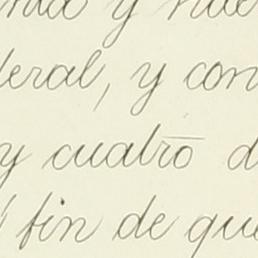 y
deral, y con
y cuatro d
fin de que